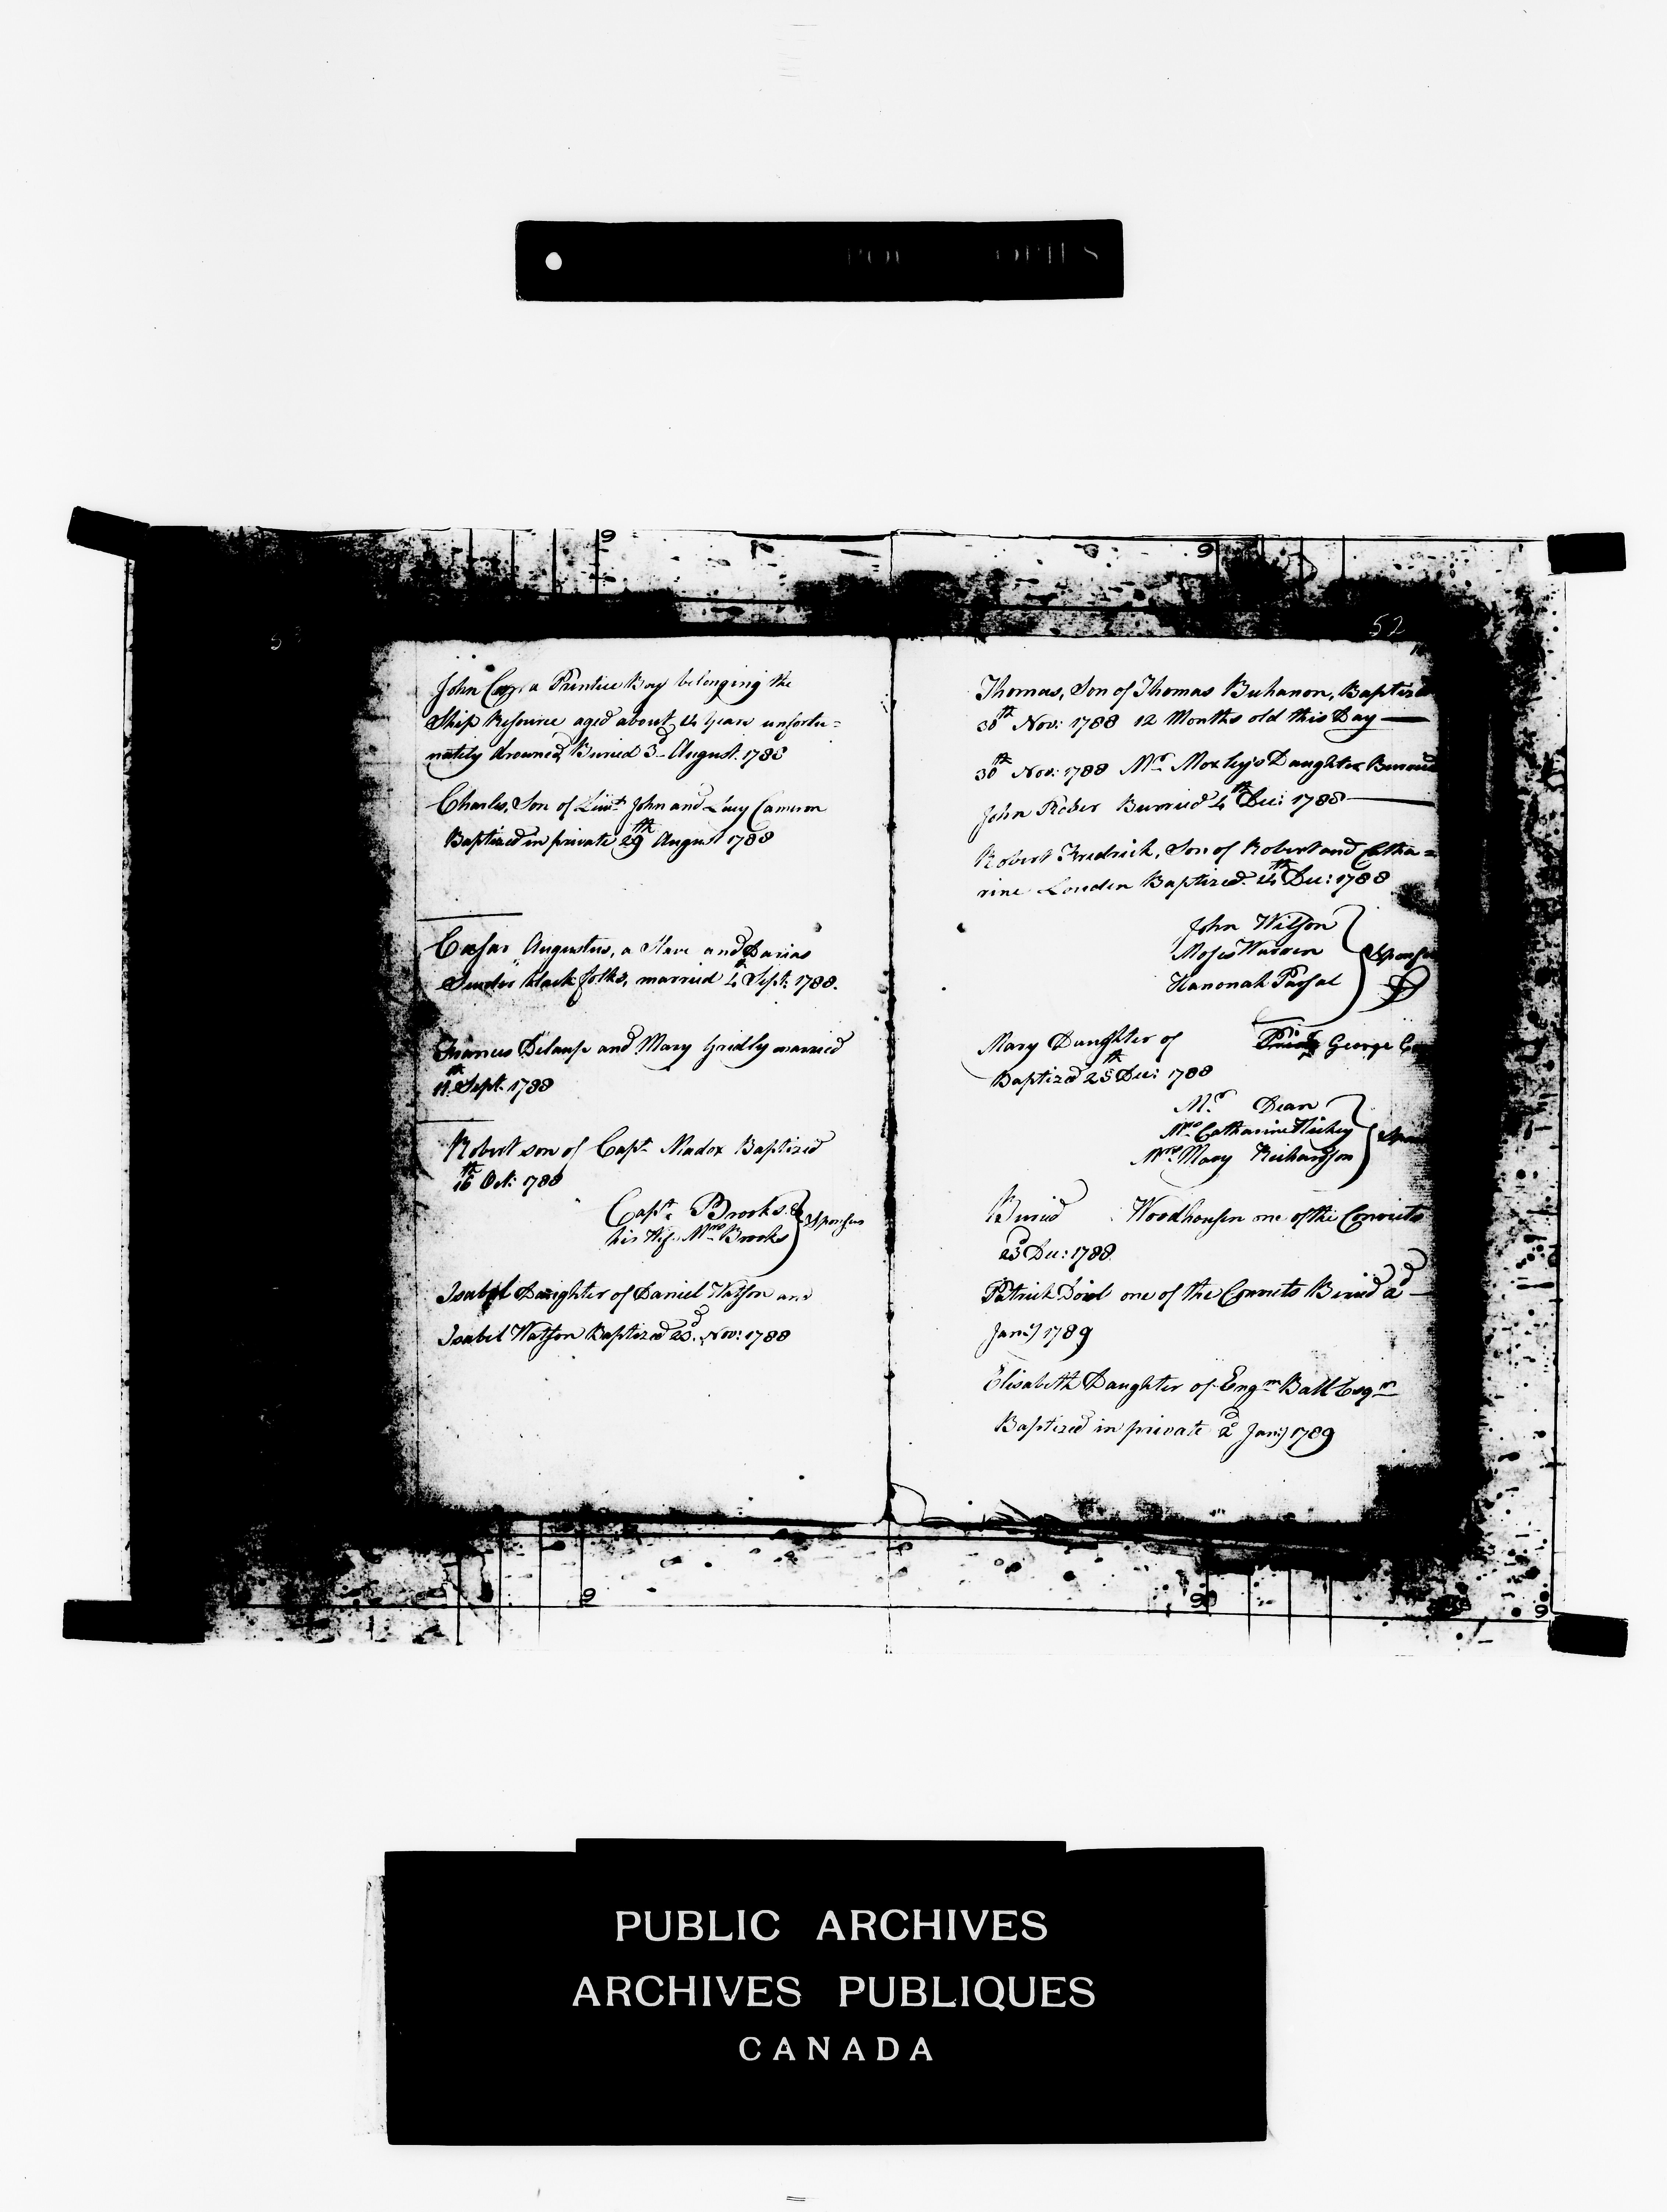 52
John Cox, a Prentice Boy belonging the
Ship Resource aged about 14 Years unfortu=
nately drowned, Buried 3d August 1788
Charles, Son of Lieut John and Lucy Cameron
Baptized in private 29th August 1788
Cæsar Augustus, a Slave and Darias
Snider black folks, married 4 Sept: 1788.
Francis and Mary Gridly married
11th Sept. 1788
Robert son of Capt Madox Baptized
16th Oct: 1788
Capt Brooks &
his Wife Mrs Brooks } Sponsors
Isabel Daughter of Daniel Watson and
Isabel Watson Baptized 23d Nov: 1788
Thomas, Son of Thomas Buhanon, Baptized
30th Nov: 1788 12 Months old this Day
30th Nov: 1788 Mr Moxley's Daughter
John Buried 4th Dec: 1788
Robert Fredrick, Son of Robert and Catha=
rine Louden Baptized 14th Dec: 1788
John Wilson
Moses Warren } Sponsors
Hannonah
Mary Daughter of George
Baptized 25th Dec: 1788
Mr Dean
Mrs Catharine Hickey
Mrs Mary Richardson
Buried Woodhousen one of the Convicts
23d Dec: 1788
Patrick one of the Convicts Buried 2d
Jany 1789
Elisabeth Daughter of Engn Ball Esqr
Baptized in private 2d Jany 1789
PUBLIC ARCHIVES
ARCHIVES PUBLIQUES
CANADA